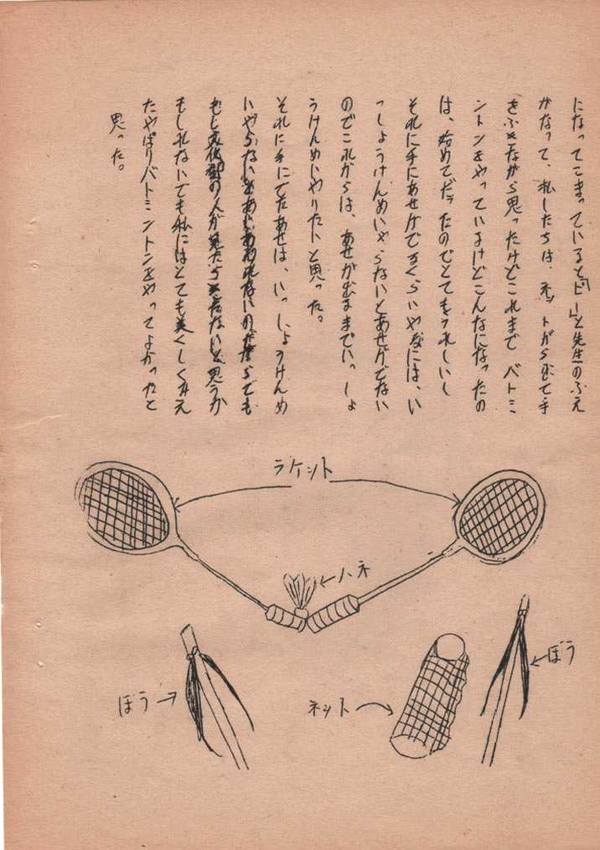 になってこまっていると「ピー」と先生のふえ
がなって、私したちは、ネットから出て手
をふきながら思ったけどこれまで バトミ
ントンをやっているけどこんなになったの
は、始めてだったのでとてもうれしいし
それに手にあせがでるくらいやるには、い
っしょうけんめいやらないとあせがでない
のでこれからは、あせが出るまでいっしょ
うけんめいやりたいと思った。
それに手にでたあせは、いっしょうけんめ
いやらないとあじあわれないのだからでも
もし の人が見たらきたないと思うか
もしれないでも私にはとても美くしくみえ
たやぱりバトミントンをやってよかったと
思った。
ラケット
ハネ
ぼう
ネット
ぼう